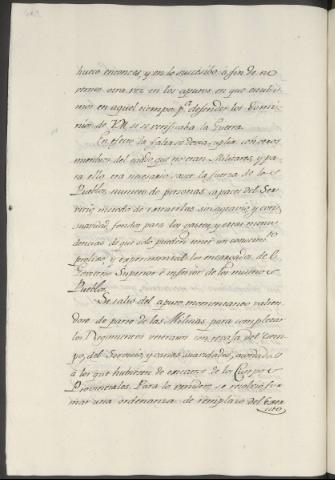 hueco entonces, y en lo sucesivo a fin de no
vernos otra vez en los apuros en que estubi-
mos en aquel tiempo p.ª defender los Domi-
nios de V.M. si se verificaba la Guerra.
En efecto la falta se devia suplir con otros
individuos que no eran Militares, y pa-
ra ello era necesario saver la fuerza de los
Pueblos, numero de personas capaces del Ser-
vicio, modo de reemplazarlas sin agravio, y con
suavidad, fondos para los gastos, y otras inci-
dencias de que solo pueden tener un conocim.to
prolixo, y experimental los encargados de el
Govierno Superior é inferior de los mismos
Pueblos.
Se salió del apuro momentaneo valien-
dose de parte de las Milicias para completar
los Regimientos veteranos con rebaja del tiem-
po, del Servicio, y varias
á los que hubiesen de de los Cuerpos
Provinciales. Para lo venidero se resolvió for-
mar una ordenanza de reemplazo del Exer-
cito